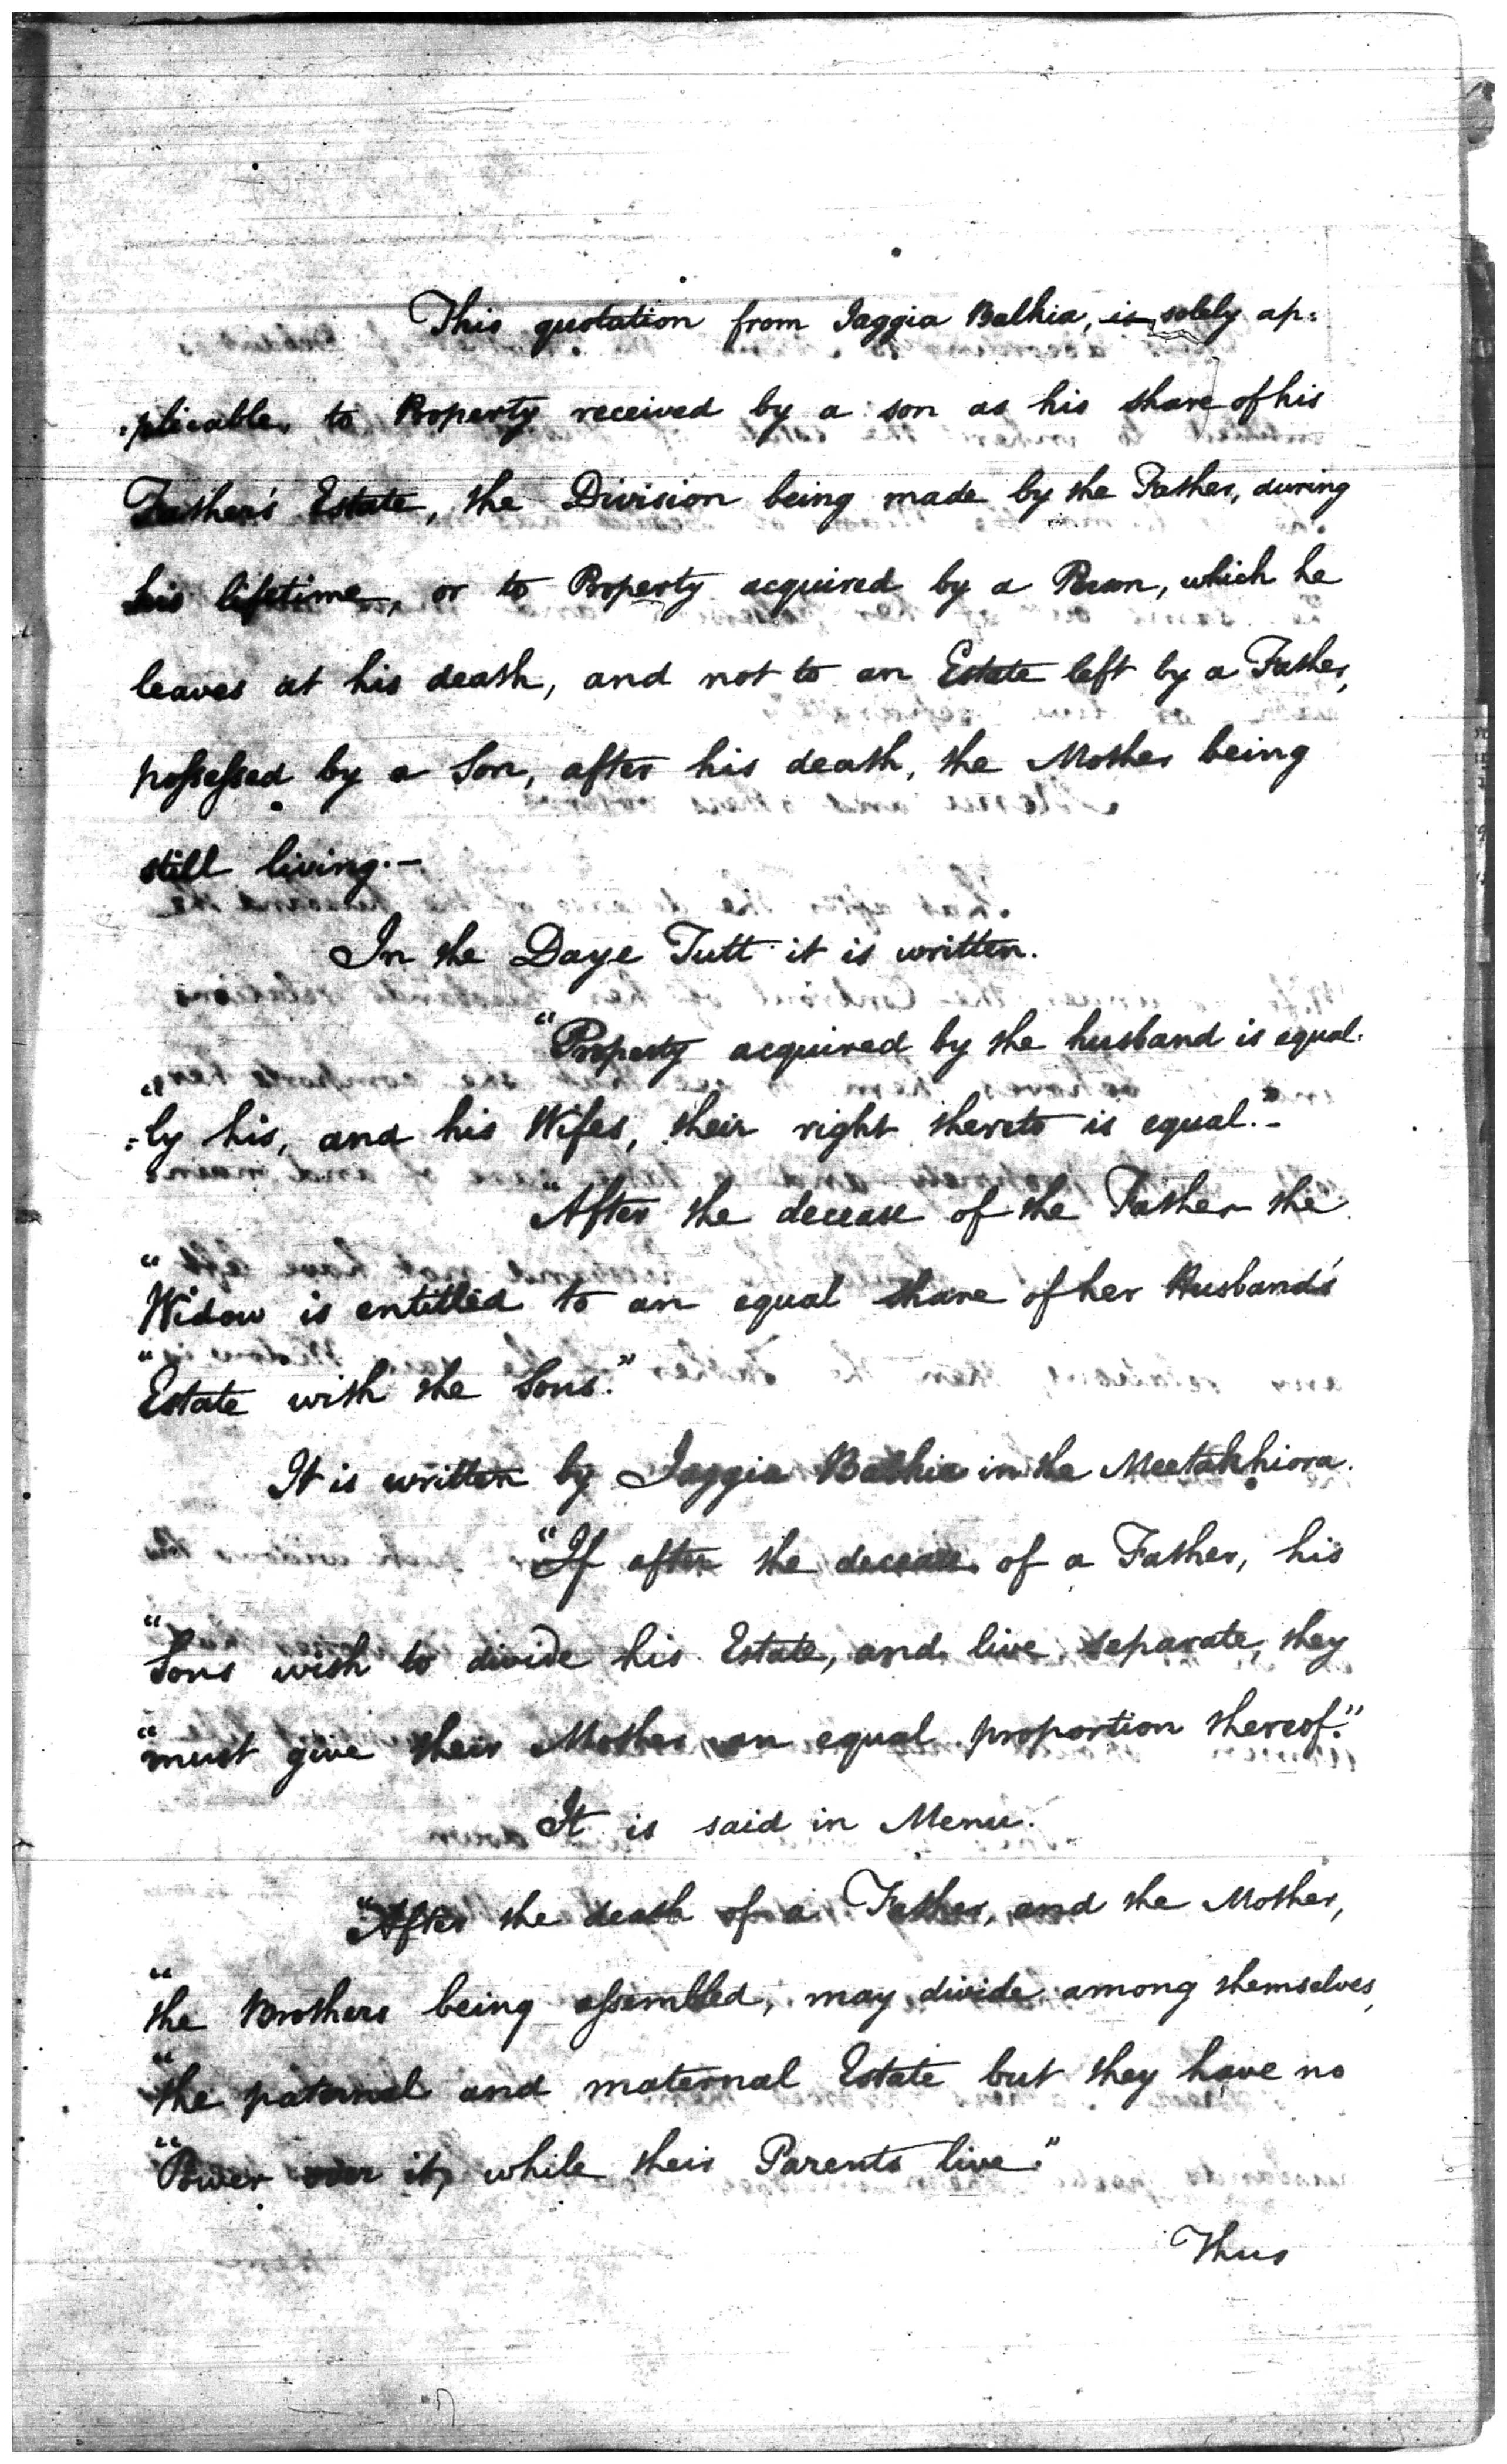 This quotation from Jaggia Balkia, is solely ap:
:plicable, to Property received by a son as his share of his
Father's Estate, the Division being made by the Father, during
his lifetime, or to Property acquired by a Person, which he
leaves at his death, and not to an Estate left by a Father,
possessed by a Son, after his death, the Mother being
still living.—
In the Daye Tutt it is written.
"Property acquired by the husband is equal:
":ly his, and his Wifes, their right thereto is equal."—
"After the decease of the Father the
"Widow is entitled to an equal share of her Husband's
"Estate with the Sons."
It is written by Jaggia Balkia in the Meetakhiora.
"If after the decease of a Father, his
"Sons wish to divide his Estate, and live separate, they
"must give their Mother an equal proportion thereof."
It is said in Menu.
"After the death of a Father, and the Mother,
"the Brothers being assembled, may divide among themselves,
"the paternal and maternal Estate but they have no
"Power over it, while their Parents live."
Thus